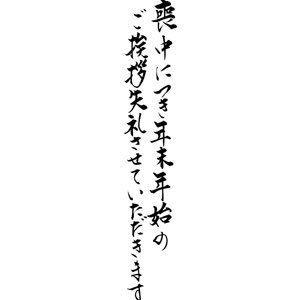 喪中につき年末年始の
ご挨拶失礼させていただきます